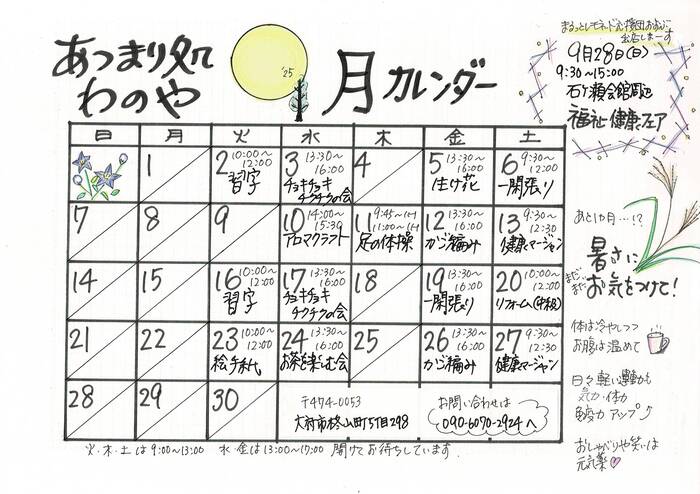 あつまり処
わのや
'25
月カレンダー
まるっとレモネード応援団おおぶ
出店しまーす
9月28日(日)
9:30~15:00
石ケ瀬会館周辺
福祉・健康フェア
日 月 火 水 木 金 土
1
2 10:00~12:00 習字
3 13:30~16:00 チョキチョキチクチクの会
4
5 13:30~16:00 生け花
6 9:30~12:00 一閑張り
7
8
9
10 14:00~15:30 アロマクラフト
11 9:45~(1H) 11:00~(1H) 足の体操
12 13:30~16:00 かご編み
13 9:30~12:30 健康マージャン
14
15
16 10:00~12:00 習字
17 13:30~16:00 チョキチョキチクチクの会
18
19 13:30~16:00 一閑張り
20 10:00~12:00 リフォーム(中級)
21
22
23 10:00~12:00 絵手紙
24 13:30~16:00 お茶を楽しむ会
25
26 13:30~16:00 かご編み
27 9:30~12:30 健康マージャン
28
29
30
〒474-0053
大府市柊山町5丁目298
お問い合わせは
090-6070-2924へ
火・木・土は9:00~13:00 水・金は13:00~17:00 開けてお待ちしています。
あと1ヶ月…!?
まだまだ
暑さに
お気をつけて!
体は冷やしつつ
お腹は温めて
日々軽い運動も
気力・体力
免疫力アップ⤴
おしゃべりや笑いは
元気薬♡